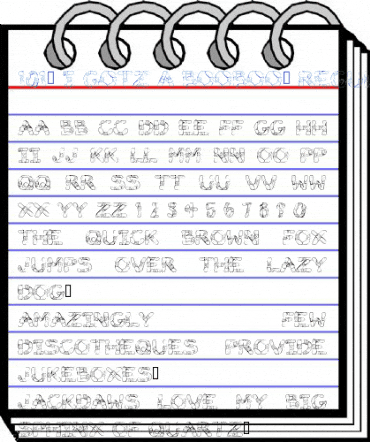 101□ I GOTZ A BOOBOO□ REGULA
AA BB CC DD EE FF GG HH
II JJ KK LL MM NN OO PP
QQ RR SS TT UU VV WW
XX YY ZZ 1 2 3 4 5 6 7 8 9 0
THE QUICK BROWN FOX
JUMPS OVER THE LAZY
DOG□
AMAZINGLY FEW
DISCOTHEQUES PROVIDE
JUKEBOXES□
JACKDAWS LOVE MY BIG
SPHINX OF QUARTZ□